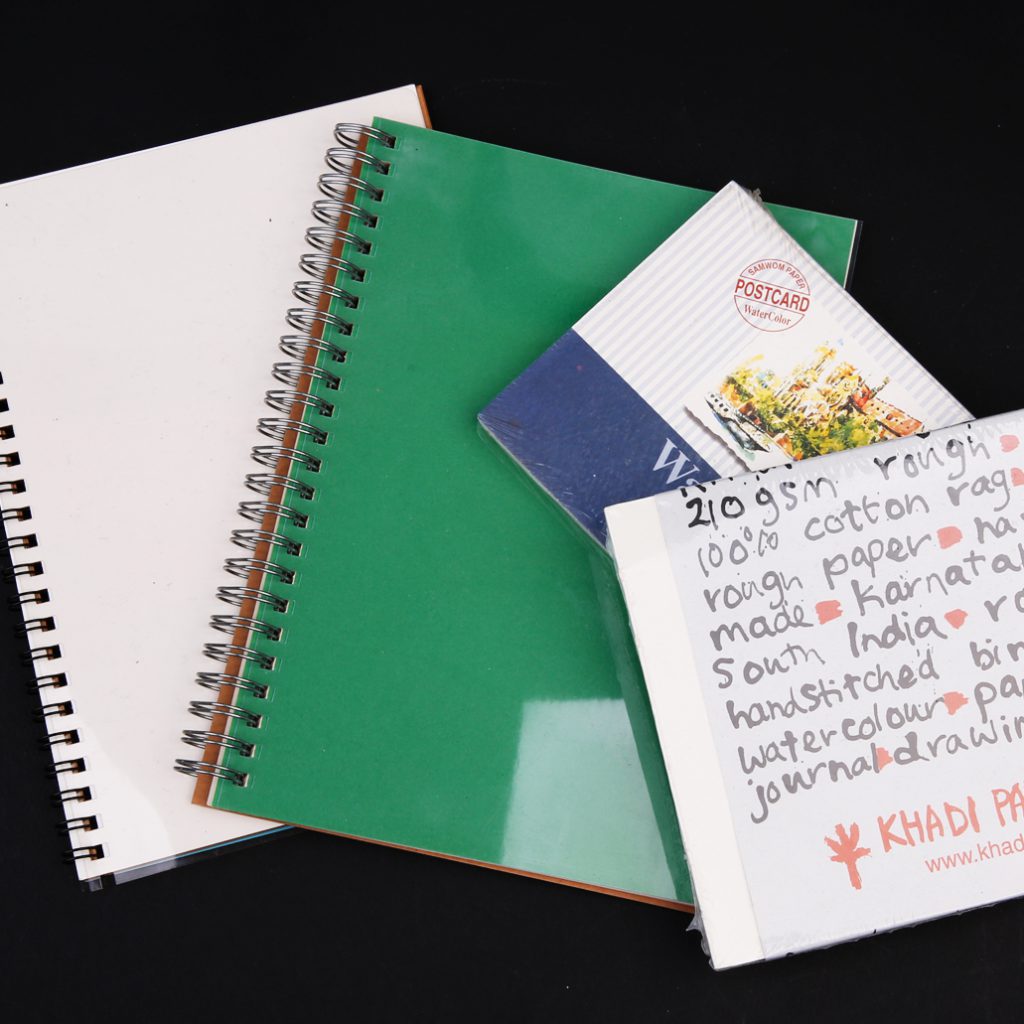 SAMWOM PAPER
POSTCARD
WaterColor
210 gsm rough
100% cotton rag
rough paper
made Karnatak
South India
handstitched
watercolour
journal drawin
KHADI PA
www.khad